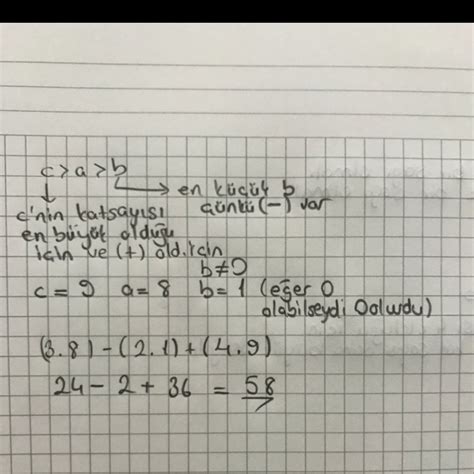 c>a>b
en küçük b
çünkü (-) var
c'nin katsayısı
en büyük olduğu
için ve (+) old. için
b≠0
c=9 a=8 b=1 (eğer 0
olabilseydi 0 olurdu)
(3.8)-(2.1)+(4.9)
24-2+36=58